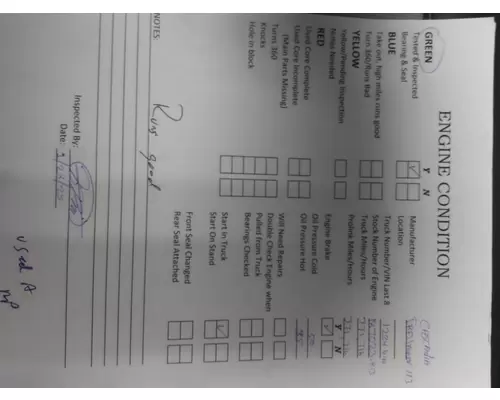 ENGINE CONDITION
GREEN
Y N
Tested & Inspected
Bearing & Seal
BLUE
Take out, high miles runs good
Turn 360/Runs Bad
YELLOW
Yellow/Pending Inspection
Notes Needed
RED
Used Core Complete
Used Core Incomplete
(Main Parts Missing)
Turns 360
Knocks
Hole in block
Manufacturer
Location
Truck Number/VIN Last 8
Stock Number of Engine
Truck Miles/Hours
Pulled Miles/Hours
Y N
Engine Brake
Oil Pressure Cold
Oil Pressure Hot
Will Need Repairs
Double Check Engine when
Pulled from Truck
Bearings Checked
Start In Truck
Start On Stand
Front Seal Changed
Rear Seal Attached
NOTES:
Runs good
Inspected By:
Date:
Used A